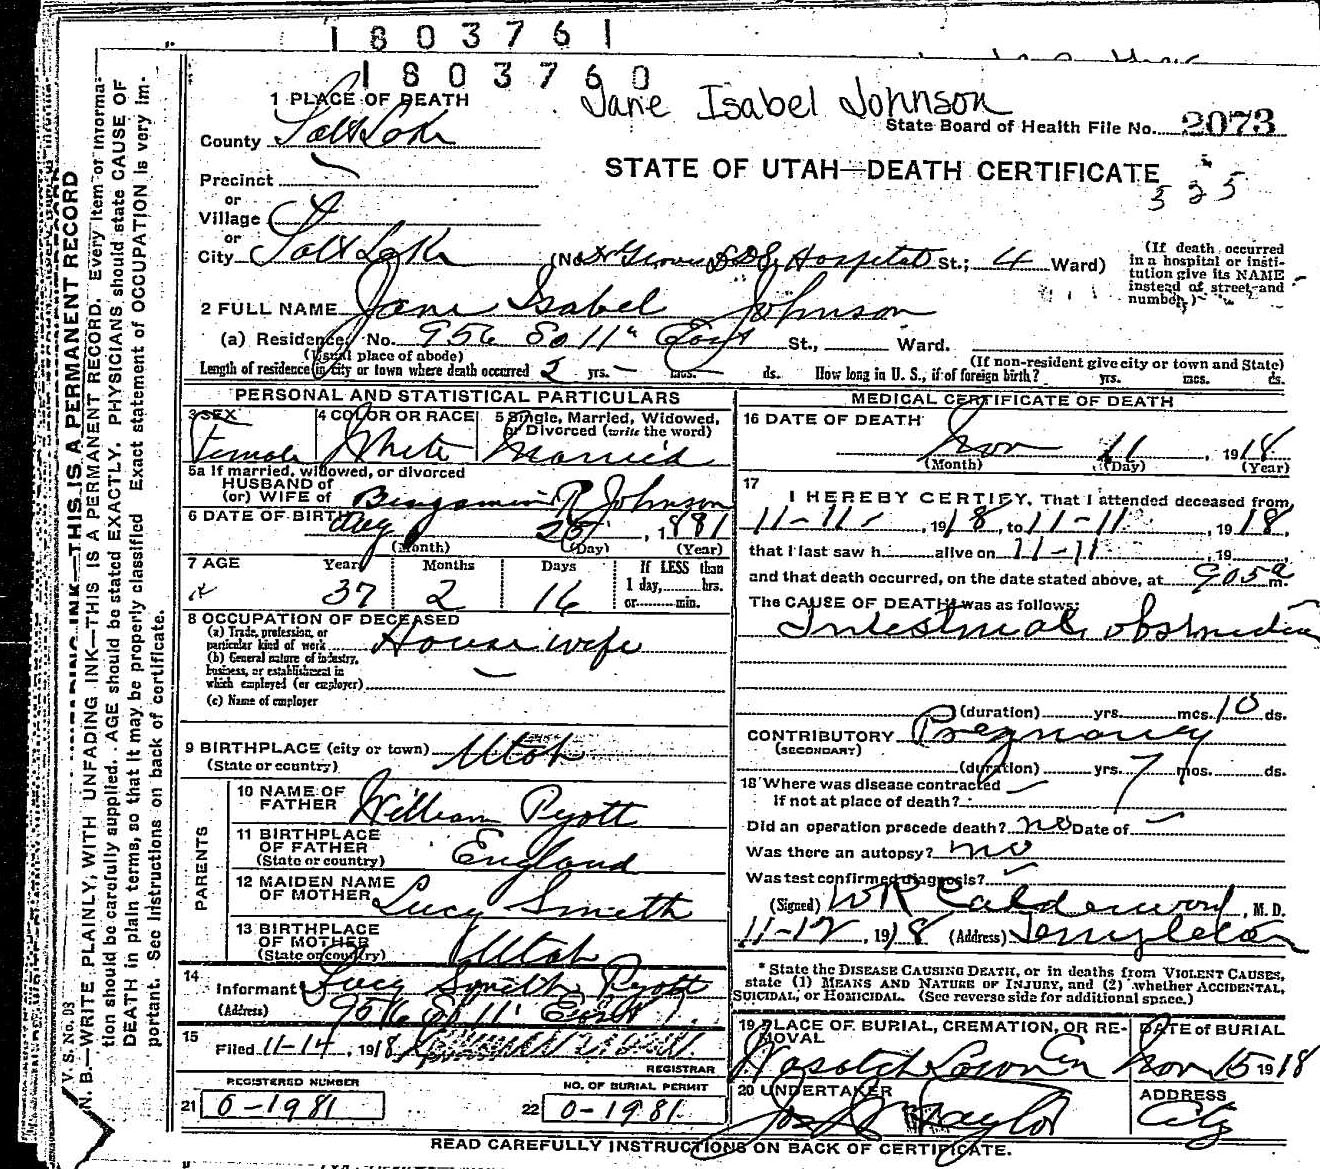 1803761
1803760
Jane Isabel Johnson
1 PLACE OF DEATH
State Board of Health File No. 2073
County Salt Lake
STATE OF UTAH—DEATH CERTIFICATE
325
Precinct
or
Village
or
City Salt Lake (No. Dr Groves LDS Hospital St.; 4 Ward)
(If death occurred in a hospital or institution give its NAME instead of street and number.)
2 FULL NAME Jane Isabel Johnson
(a) Residence, No. 956 So 11" East St., Ward.
(Usual place of abode) (If non-resident give city or town and State)
Length of residence in city or town where death occurred 2 yrs. – mos. ds. How long in U. S., if of foreign birth? yrs. mos. ds.
PERSONAL AND STATISTICAL PARTICULARS
3 SEX Female
4 COLOR OR RACE White
5 Single, Married, Widowed, or Divorced (write the word) Married
5a If married, widowed, or divorced
HUSBAND of
(or) WIFE of Benjamin R Johnson
6 DATE OF BIRTH Aug 25, 1881
(Month) (Day) (Year)
7 AGE Years Months Days If LESS than 1 day, hrs. or min.
37 2 16
8 OCCUPATION OF DECEASED
(a) Trade, profession, or particular kind of work House wife
(b) General nature of industry, business, or establishment in which employed (or employer) –
(c) Name of employer
9 BIRTHPLACE (city or town) Utah
(State or country)
PARENTS
10 NAME OF FATHER William Pyott
11 BIRTHPLACE OF FATHER (State or country) England
12 MAIDEN NAME OF MOTHER Lucy Smith
13 BIRTHPLACE OF MOTHER (State or country) Utah
14 Informant Lucy Smith Pyott
(Address) 956 So 11" East
15 Filed 11-14, 1918
REGISTRAR
REGISTERED NUMBER
21 0-1981
NO. OF BURIAL PERMIT
22 0-1981
MEDICAL CERTIFICATE OF DEATH
16 DATE OF DEATH
Nov 11, 1918
(Month) (Day) (Year)
17 I HEREBY CERTIFY, That I attended deceased from
11-11-, 1918, to 11-11, 1918,
that I last saw h alive on 11-11, 19
and that death occurred, on the date stated above, at 905 a m.
The CAUSE OF DEATH* was as follows:
Intestinal obstruction
(duration) yrs. mos. 10 ds.
CONTRIBUTORY Pregnancy
(SECONDARY)
(duration) yrs. 7 mos. ds.
18 Where was disease contracted
if not at place of death? –
Did an operation precede death? no Date of –
Was there an autopsy? no
Was test confirmed diagnosis? –
(Signed) W R Calderwood, M. D.
11-12, 1918 (Address) Templeton
* State the DISEASE CAUSING DEATH, or in deaths from VIOLENT CAUSES,
state (1) MEANS AND NATURE OF INJURY, and (2) whether ACCIDENTAL,
SUICIDAL, or HOMICIDAL. (See reverse side for additional space.)
19 PLACE OF BURIAL, CREMATION, OR REMOVAL
Wasatch Lawn Cem
DATE of BURIAL
Nov 15 1918
20 UNDERTAKER
Taylor
ADDRESS
City
READ CAREFULLY INSTRUCTIONS ON BACK OF CERTIFICATE.
V. S. No. D3
N. B.—WRITE PLAINLY, WITH UNFADING INK—THIS IS A PERMANENT RECORD. Every item of information should be carefully supplied. AGE should be stated EXACTLY. PHYSICIANS should state CAUSE OF DEATH in plain terms, so that it may be properly classified. Exact statement of OCCUPATION is very important. See Instructions on back of certificate.
INK—THIS IS A PERMANENT RECORD